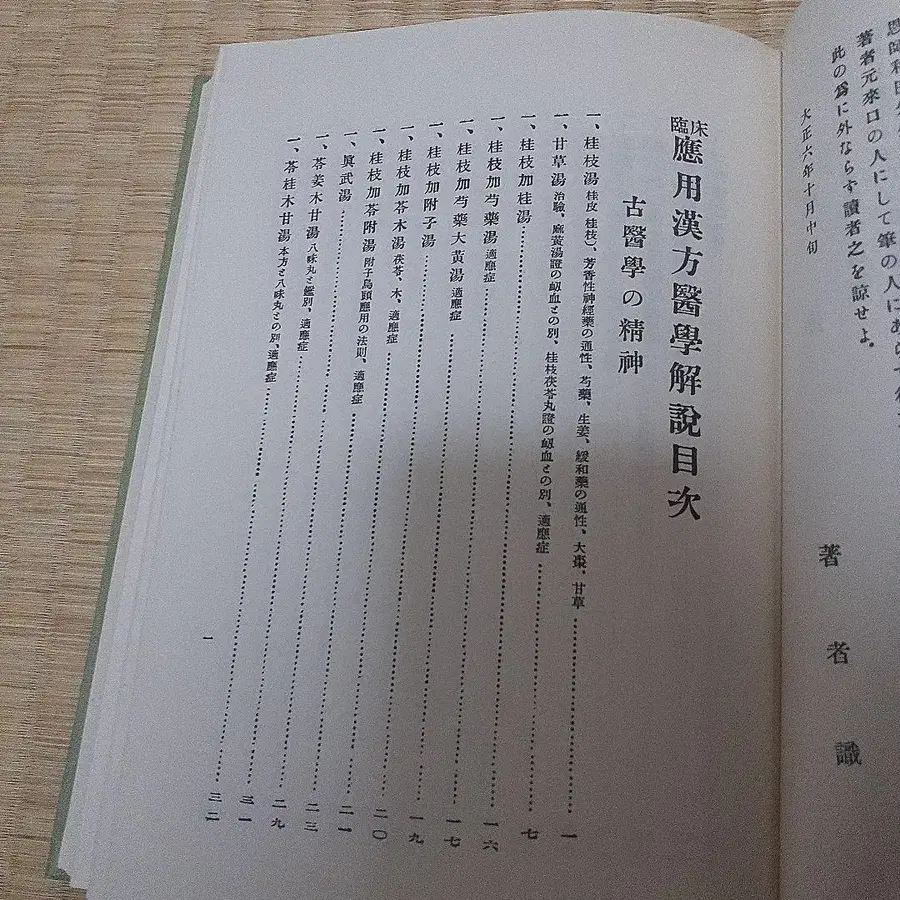 著者元來口の人にして筆の人にあらず
此の爲に外ならず讀者之を諒せよ。
大正六年十月中旬
著者識
臨床應用漢方醫學解說目次
古醫學の精神
一、桂枝湯 桂皮 桂枝)、芳香性神經藥の通性、芍藥、生姜、緩和藥の通性、大棗、甘草……一
一、甘草湯 治驗、麻黃湯證の衂血との別、桂枝茯苓丸證の衂血との別、適應症……七
一、桂枝加桂湯……一六
一、桂枝加芍藥湯 適應症……一七
一、桂枝加芍藥大黃湯 適應症……一九
一、桂枝加附子湯……二〇
一、桂枝加苓木湯 茯苓、木、適應症……二一
一、桂枝加苓附湯 附子烏頭應用の法則、適應症……二三
一、眞武湯……二九
一、苓姜木甘湯 八味丸と鑑別、適應症……三一
一、苓桂木甘湯 本方と八味丸との別、適應症……三二
一